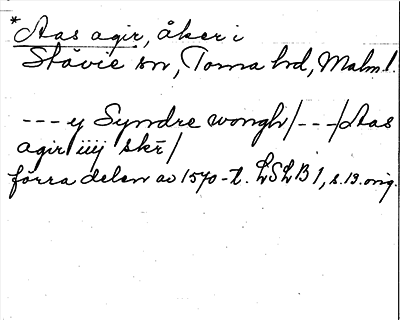 *Aas agir, åker i
Stävie sn, Torna hd, Malm l.
---y Syndre wongh/---/Aas
agir iiij skr̄/
förra delen av 1570-t. LSLB 1, s.13.orig.